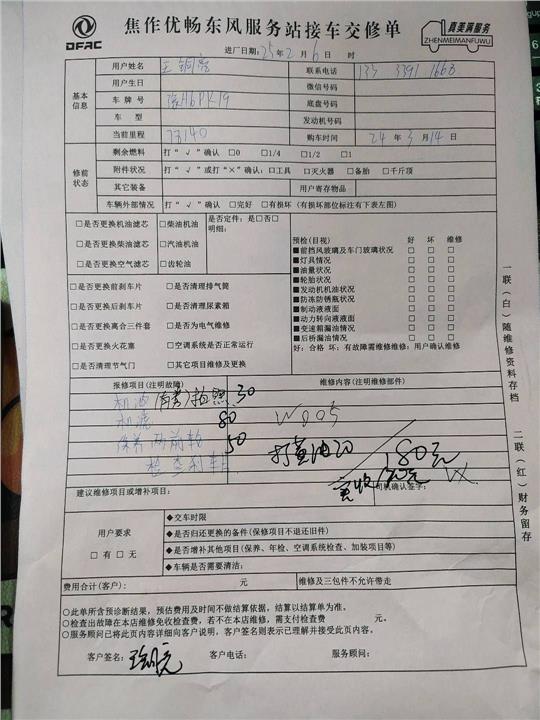 DFAC
焦作优畅东风服务站接车交修单
真美满服务
ZHENMEIMANFUWU
进厂日期:25年2月6日 时
基本信息
用户姓名 王铜亮 联系电话 133 3391 1668
用户生日 微信号码
车牌号 豫H6PK19 底盘号码
车型 发动机号码
当前里程 73140 购车时间 24年3月14日
修前状态
剩余燃料 打“√”确认 □0 □1/4 □1/2 □1
附件状况 打“√”或打“×”确认:□工具 □灭火器 □备胎 □千斤顶
其它装备 用户寄存物品
车辆外部情况 打“√”确认 □完好 □有损坏(有损坏部位标注有下表左图)
□是否更换机油滤芯 □柴油机油 是否定件:是□否□
□是否更换柴油滤芯 □汽油机油 明细:
□是否更换空气滤芯 □齿轮油
□是否更换前刹车片 □是否清理排气筒
□是否更换后刹车片 □是否清理尿素箱
□是否更换离合三件套 □是否为电气维修
□是否更换火花塞 □空调系统是否正常运行
□是否清理节气门 □其它项目维修及更换
预检(目视) 好 坏 维修
■前挡风玻璃及车门玻璃状况 □ □ □
■灯具情况 □ □ □
■油量状况 □ □ □
■轮胎状况 □ □ □
■发动机机油状况 □ □ □
■防冻防锈瓶状况 □ □ □
■制动液液面 □ □ □
■动力转向液液面 □ □ □
■变速箱漏油情况 □ □ □
■后桥漏油情况 □ □ □
好:合格 坏:有故障需维修维修:用户确认维修
报修项目(注明故障) 维修内容(注明维修部件)
机油 30
机滤 80 W005
保养两前轮 50 打黄油20
检查刹车 180元
实收
建议维修项目或增补项目: 司机确认签字:
用户要求
□有 □无
◆交车时限
◆是否归还更换的备件(保修项目不退还旧件)
◆是否增补其他项目(保养、年检、空调系统检查、加装项目等)
◆车辆是否需要清洁:
费用合计(客户): 元 维修及三包件不允许带走
○此单所含预诊断结果,预估费用及时间不做结算依据,结算以结算单为准。
○检查出故障在本店维修免收检查费,若不在本店维修,需支付检查费 元。
○服务顾问已将此页内容详细向客户说明,客户签名则表示已理解并接受此页内容。
客户签名: 王铜亮 客户电话: 服务顾问:
一联(白)随维修资料存档
二联(红)财务留存